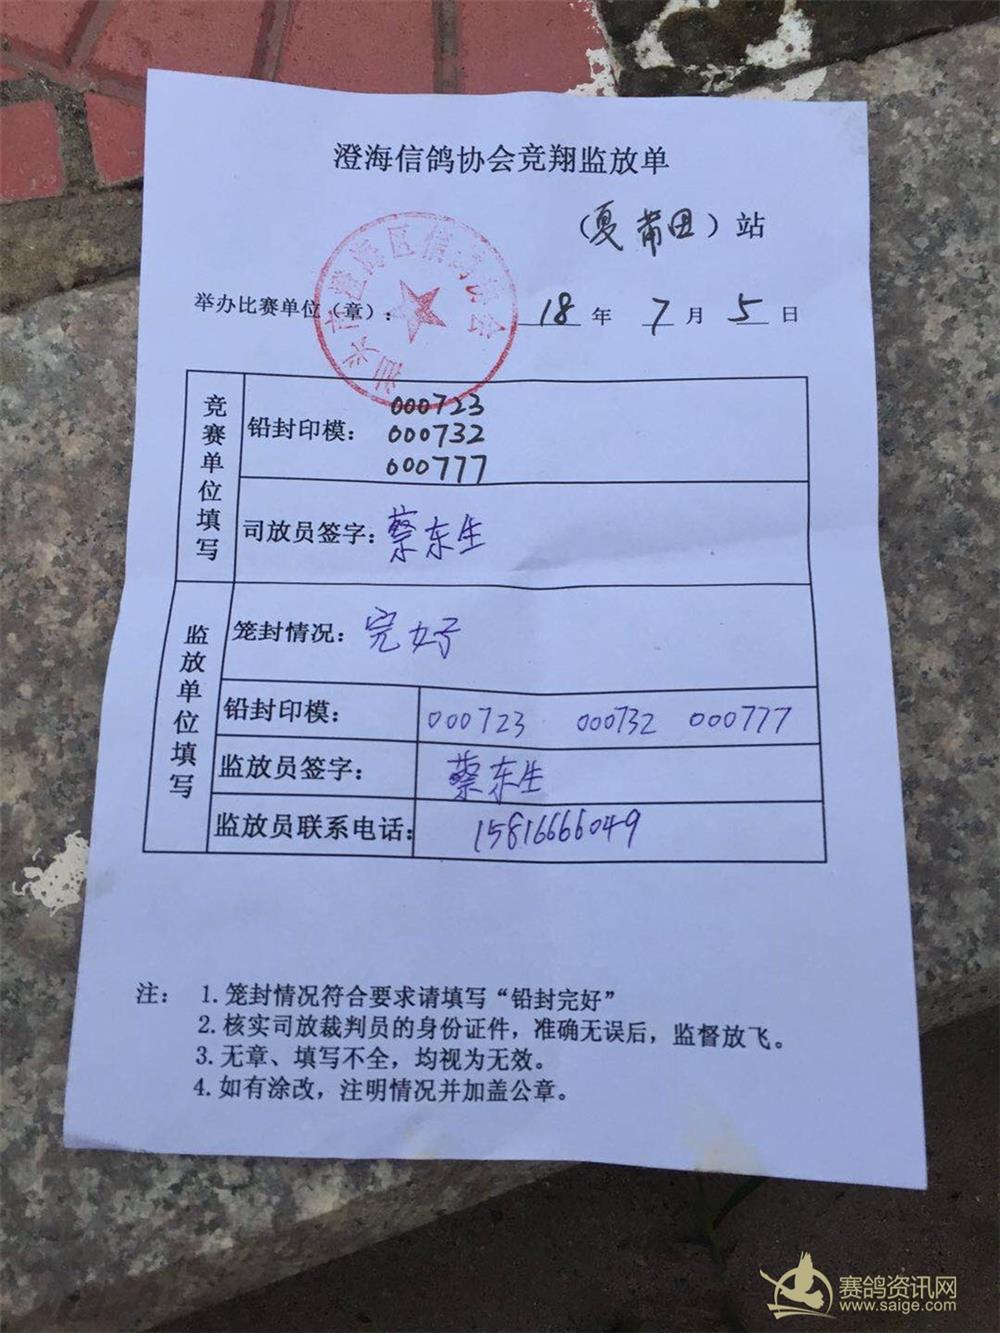 澄海信鸽协会竞翔监放单
（夏莆田）站
举办比赛单位（章）：
18年 7月 5日
汕头市澄海区信鸽协会
竞赛单位填写
铅封印模：
000723
000732
000777
司放员签字：蔡东生
监放单位填写
笼封情况：完好
铅封印模： 000723 000732 000777
监放员签字： 蔡东生
监放员联系电话： 15816666049
注： 1.笼封情况符合要求请填写“铅封完好”
2.核实司放裁判员的身份证件，准确无误后，监督放飞。
3.无章、填写不全，均视为无效。
4.如有涂改，注明情况并加盖公章。
赛鸽资讯网
www.saige.com